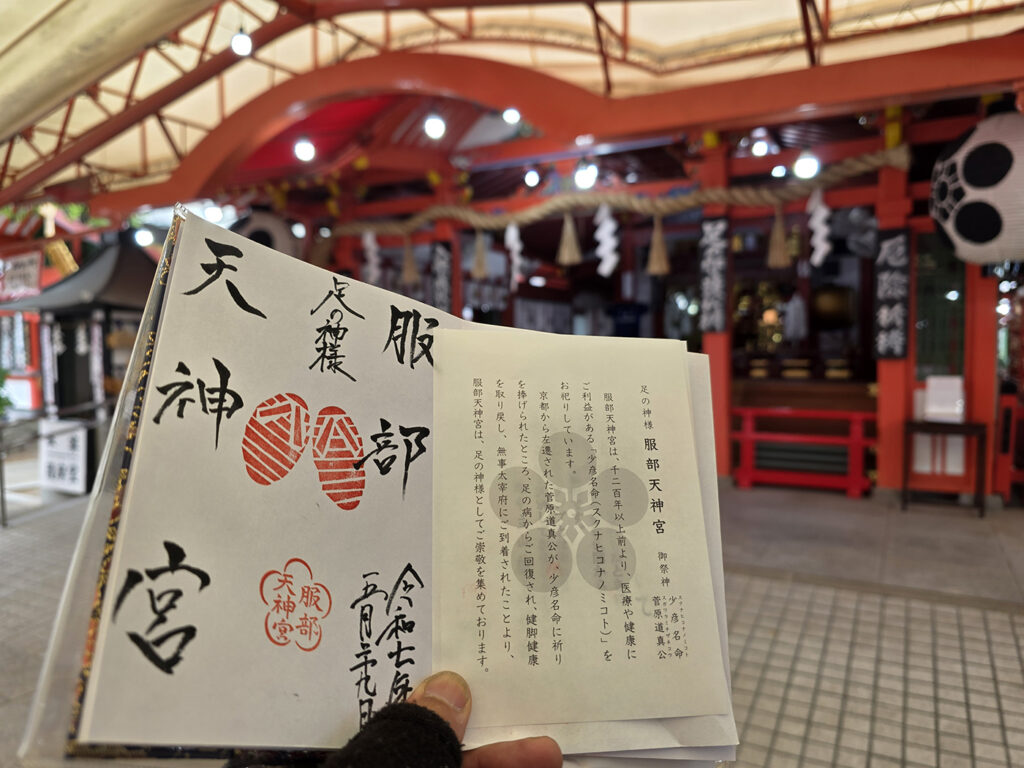 足の神様 服部天神宮 御祭神 少彦名命
菅原道真公
スクナヒコナノミコト
服部天神宮は、千二百年以上前より、医療や健康に
ご利益がある「少彦名命(スクナヒコナノミコト)」を
お祀りしています。
京都から左遷された菅原道真公が、少彦名命に祈り
を捧げられたところ、足の病からご回復され、健脚健康
を取り戻し、無事太宰府にご到着されたことより、
服部天神宮は、足の神様としてご崇敬を集めております。
服部
足の神様
天神宮
服部
天神宮
令和七年
五月二十九日
厄除祈祷